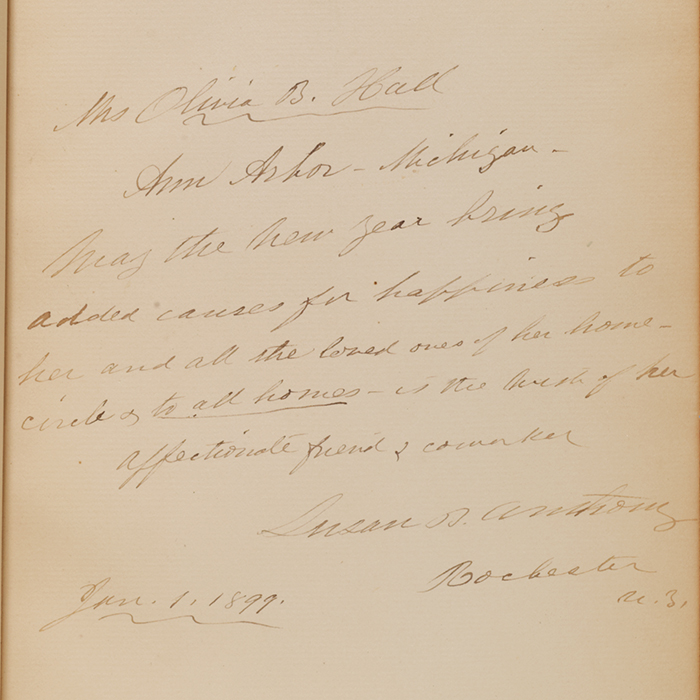 Mrs Olivia B. Hall
Ann Arbor - Michigan -
May the new year bring
added causes for happiness to
her and all the loved ones of her home-
circle & to all homes - is the wish of her
affectionate friend & coworker
Susan B. Anthony
Rochester
N.Y.
Jan. 1. 1899.